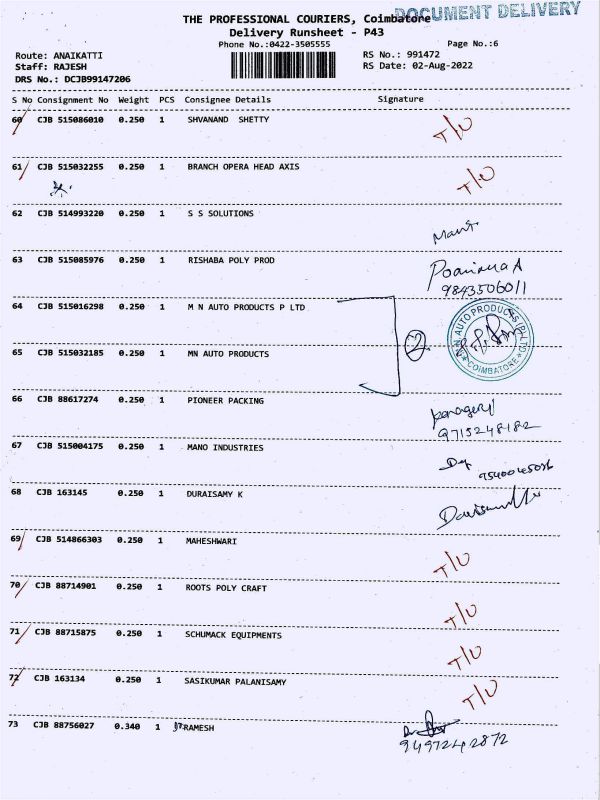 DOCUMENT DELIVERY
THE PROFESSIONAL COURIERS, Coimbatore
Delivery Runsheet - P43
Phone No.:0422-3505555 Page No.:6
Route: ANAIKATTI RS No.: 991472
Staff: RAJESH RS Date: 02-Aug-2022
DRS No.: DCJB99147206
S No Consignment No Weight PCS Consignee Details Signature
60 CJB 515086010 0.250 1 SHVANAND SHETTY T/U
61 CJB 515032255 0.250 1 BRANCH OPERA HEAD AXIS T/U
62 CJB 514993220 0.250 1 S S SOLUTIONS
63 CJB 515085976 0.250 1 RISHABA POLY PROD
9843506011
64 CJB 515016298 0.250 1 M N AUTO PRODUCTS P LTD
M.N AUTO PRODUCTS (P) LTD COIMBATORE
2
65 CJB 515032185 0.250 1 MN AUTO PRODUCTS
66 CJB 88617274 0.250 1 PIONEER PACKING
9715248182
67 CJB 515004175 0.250 1 MANO INDUSTRIES
68 CJB 163145 0.250 1 DURAISAMY K
69 CJB 514866303 0.250 1 MAHESHWARI T/U
70 CJB 88714901 0.250 1 ROOTS POLY CRAFT T/U
71 CJB 88715875 0.250 1 SCHUMACK EQUIPMENTS T/U
72 CJB 163134 0.250 1 SASIKUMAR PALANISAMY T/U
73 CJB 88756027 0.340 1 RAMESH
9497242872